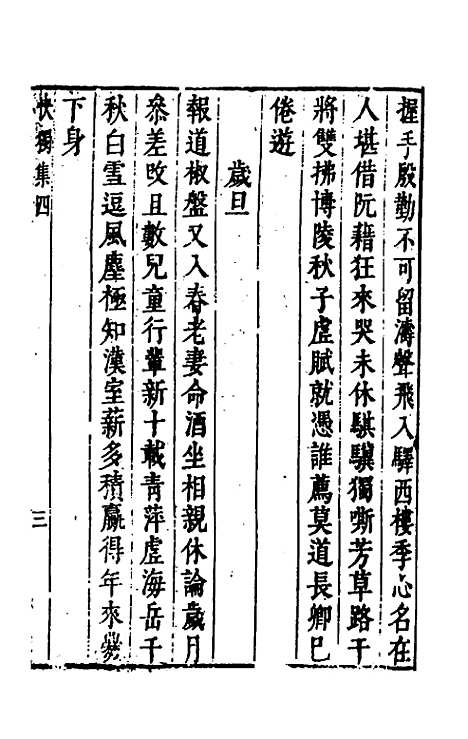 握手殷勤不可留濤聲飛入驛西樓季心名在
人堪借阮藉狂來哭未休騏驥獨嘶芳草路干
將雙拂博陵秋子虛賦就憑誰薦莫道長卿已
倦遊
歲旦
報道椒盤又入春老妻命酒坐相親休論歲月
叅差改且數兒童行輩新十載青萍虛海岳千
秋白雪逗風塵極知漢室薪多積贏得年來
下身
快獨集四
三